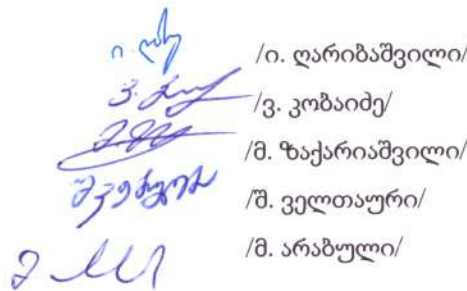 /ი. ღარიბაშვილი/
/ვ. კობაიძე/
/მ. ზაქარიაშვილი/
/შ. ველთაური/
/მ. არაბული/